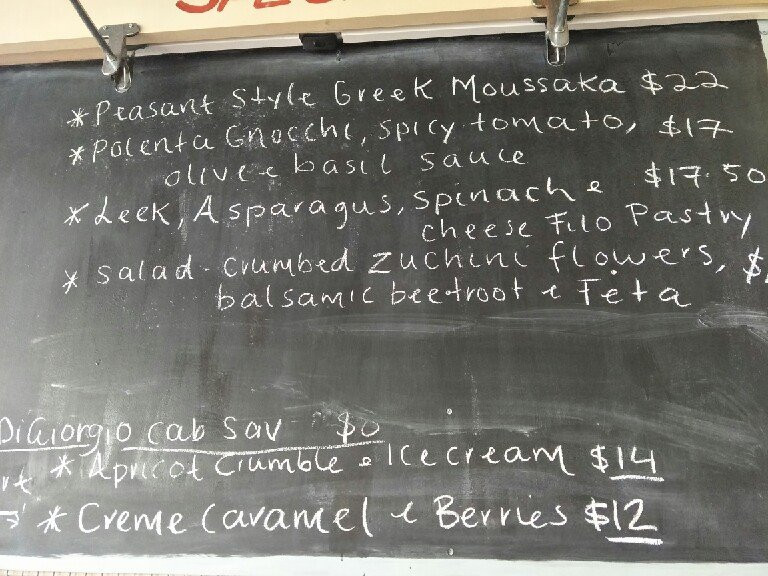 * Peasant Style Greek Moussaka $22
* Polenta Gnocchi, spicy tomato, $17
olive & basil sauce
* Leek, Asparagus, spinach & $17.50
cheese Filo Pastry
* salad - crumbed zuchini flowers, $
balsamic beetroot & Feta
DiGiorgio cab sav $0
* Apricot Crumble & Ice cream $14
* Creme Caramel & Berries $12